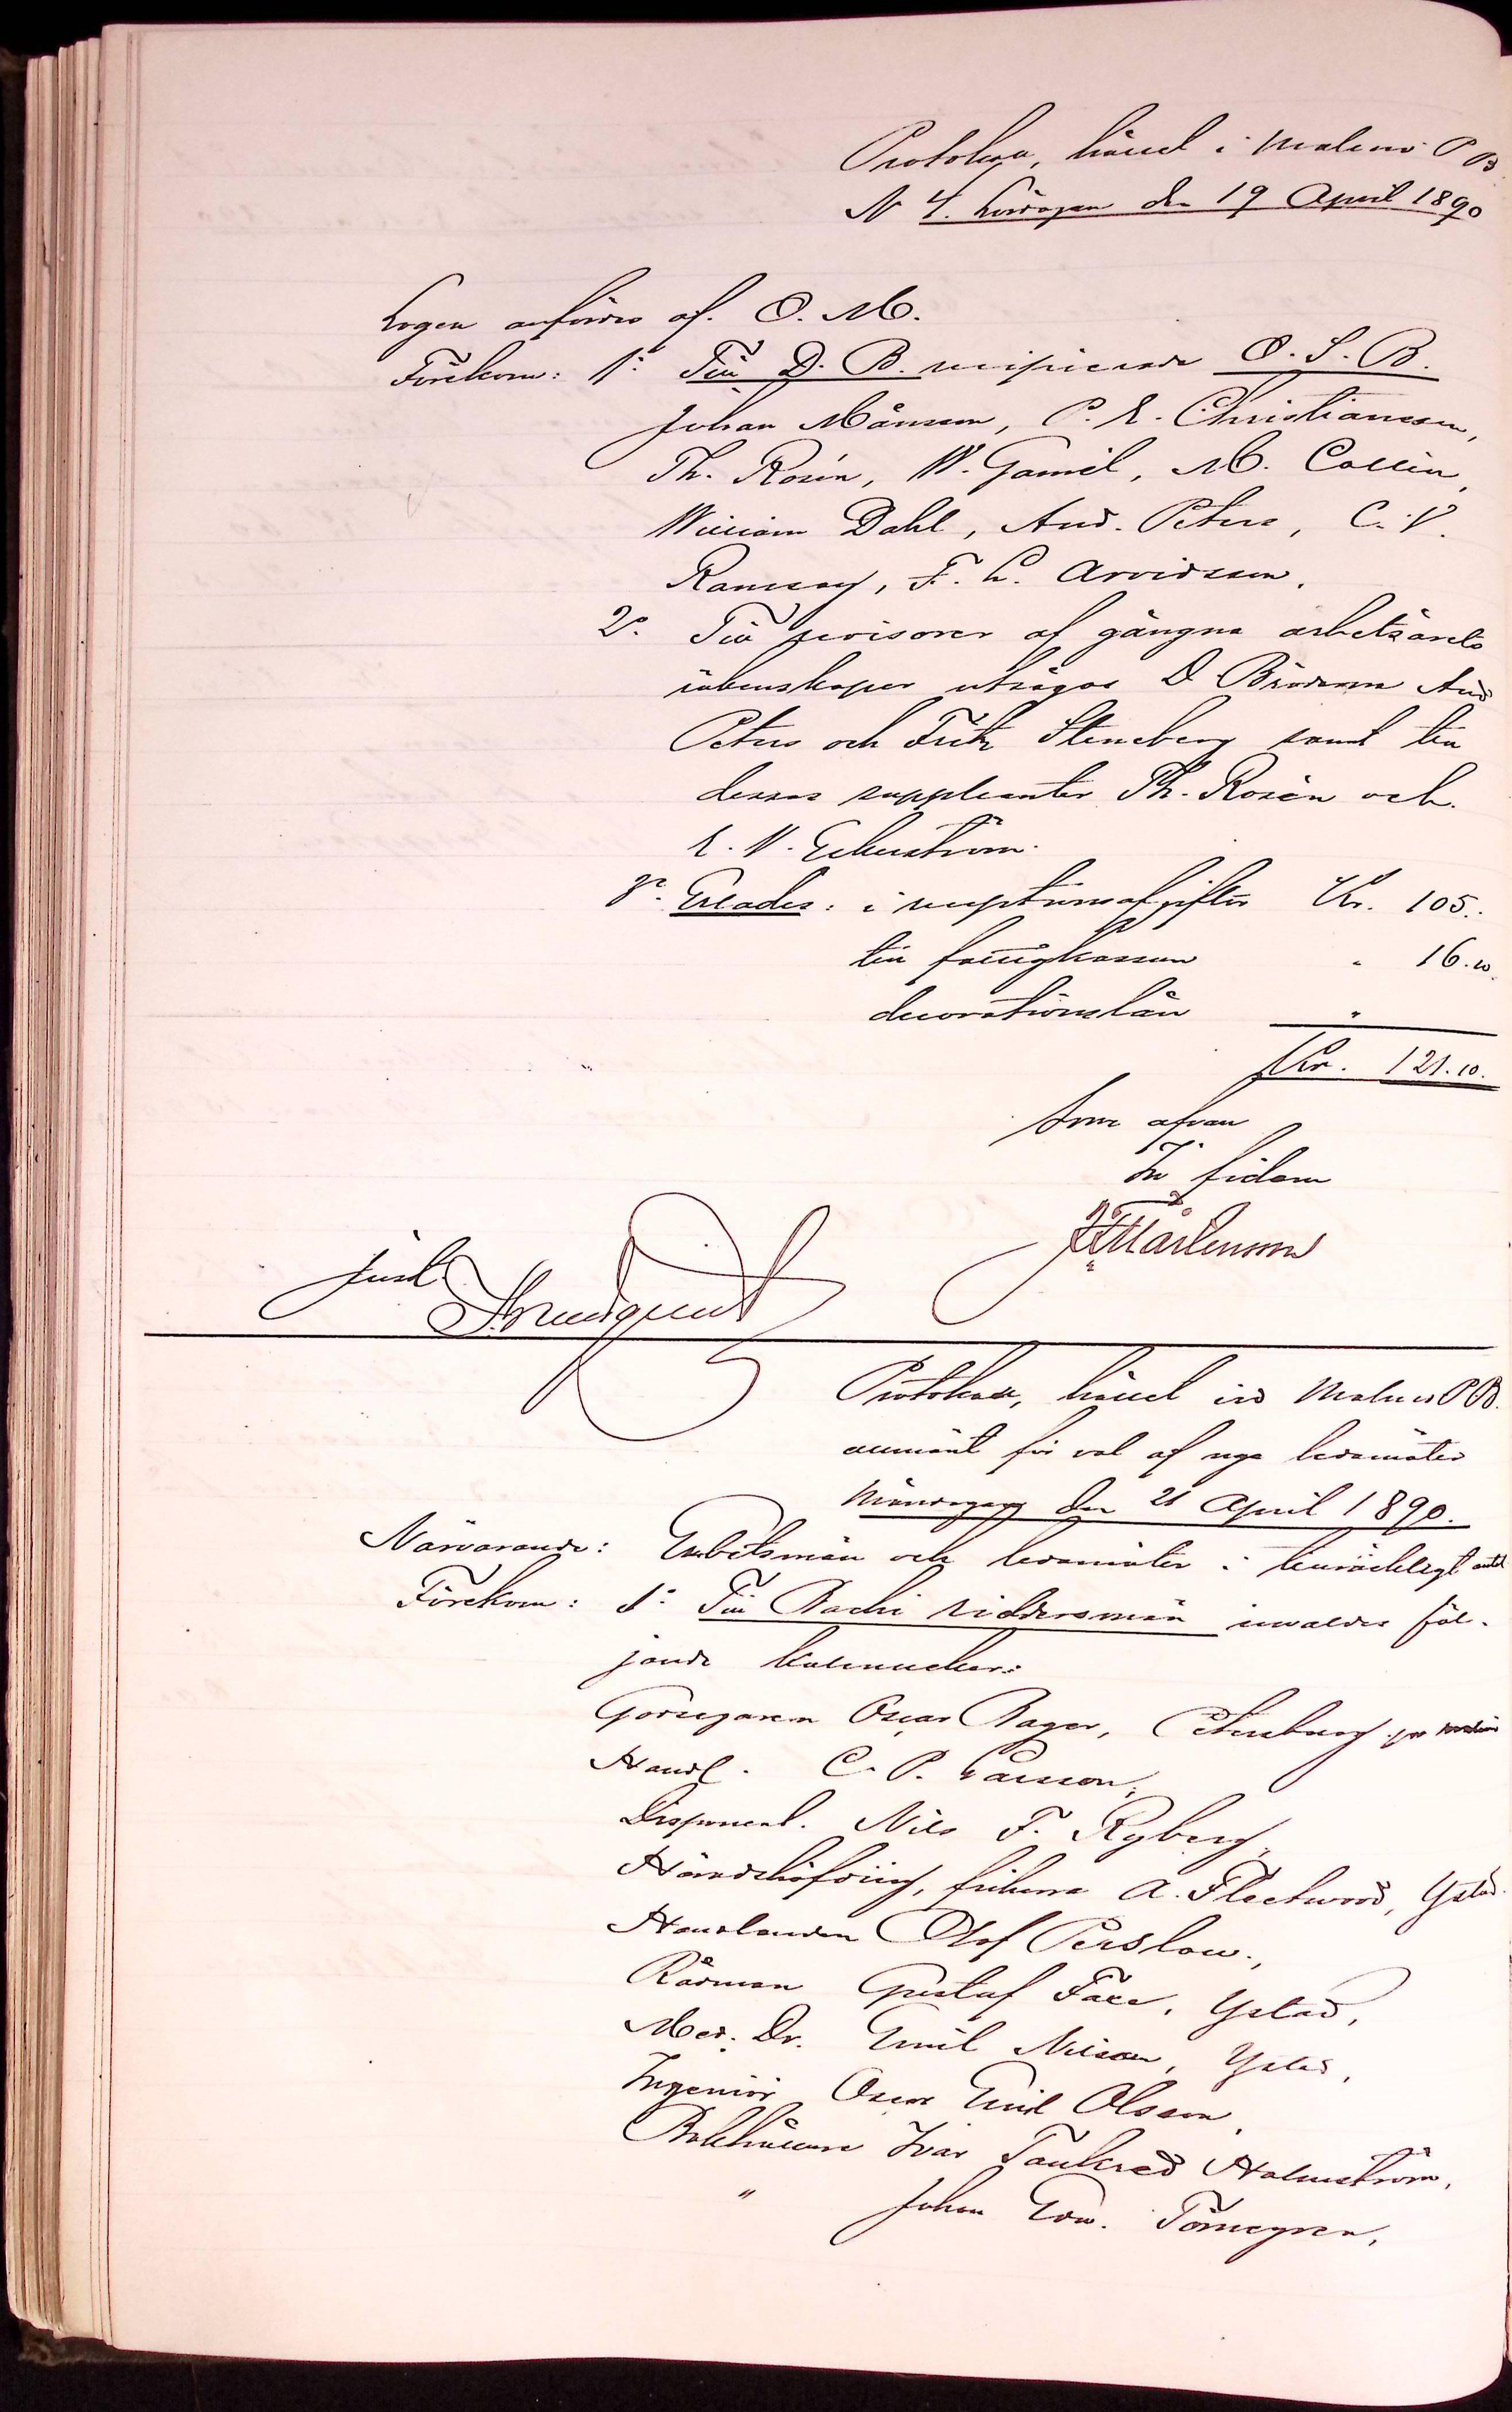 Protokoll, hållet i Malmö P B
N 4. Lördagen den 19 April 1890
Logen anfördes af. O. M.
Förekom: 1º Till D. B. recipierade O. S. B.
Johan Månsson, P. E. Christiansson,
Th. Rosén, W. Gamél, M. Collin,
William Dahl, Aud. Peters, C. V.
Ramsay, F. L. Arvidsson.
2º. Till revisorer af gångna arbetsårets
räkenskaper utsågos D Bröderna Aud
Peters och Fritz Steneberg samt till
dessas suppleanter Th. Rosén och
E. W. Eckerström.
3º. Erlades: i receptionsafgifter Kr. 105.
till fattigkassan " 16.10.
decorationslån "
Kr. 121.10.
Som ofvan
In fidem
Mårtensson
Just.
Protokoll, hållet vid Malmö P B.
allmänt för val af nya ledamöter
Måndagen den 21 April 1890.
Närvarande: Embetsmän och ledamöter i beräckligt antal
Förekom: 1º Till Bachi riddersmän invaldes föl-
jande kalmucker:
Godsegaren Oscar Bager, Petersborg pr Malmö
Handl. C. P. Larsson,
Disponent. Nils F. Ryberg,
Häradshöfding, friherre A. Fleetwood, Ystad.
Handlanden Olof Perslow.,
Rådman Gustaf Fall, Ystad,
Med. Dr. Emil Nilsson, Ystad,
Ingeniör Oscar Emil Olsson,
Bokhållare Ivar Tankred Holmström,
" Johan Edw. Törnegren,